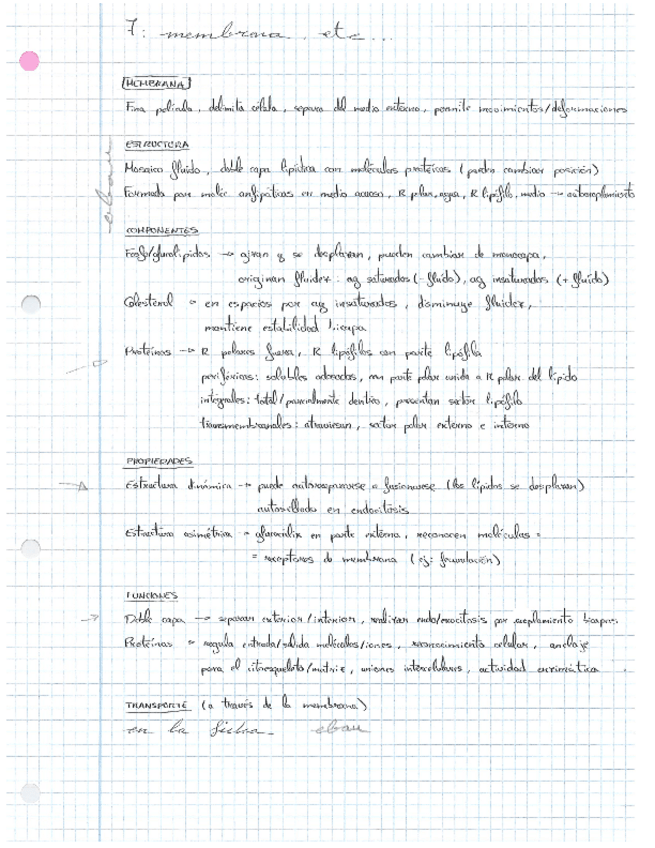 7: membrana, etc...
MEMBRANA
Fina película, delimita célula, separa del medio externo, permite movimientos/deformaciones
ESTRUCTURA
Mosaico fluido, doble capa lipídica con moléculas proteicas (pueden cambiar posición)
Formada por moléc anfipáticas en medio acuoso, R polar, agua, R lipófilo, medio → autoacoplamiento
ebau
COMPONENTES
Fosfo/glucolípidos → giran y se desplazan, pueden cambiar de monocapa,
originan fluidez: ag saturados (- fluido), ag insaturados (+ fluido)
Colesterol → en espacios por ag insaturados, disminuye fluidez,
mantiene estabilidad bicapa
Proteínas → R polares fuera, R lipófilos con parte lipófila
periféricas: solubles adosadas, con parte polar unida a R polar del lípido
integrales: total/parcialmente dentro, presentan sector lipófilo
transmembranales: atraviesan, sector polar externo e interno
PROPIEDADES
Estructura dinámica → puede autorrepararse o fusionarse (los lípidos se desplazan)
autosellado en endocitosis
Estructura asimétrica → glucocálix en parte externa, reconocen moléculas =
= receptores de membrana (ej: fecundación)
FUNCIONES
Doble capa → separar exterior/interior, realizan endo/exocitosis por acoplamiento bicapas.
Proteínas → regula entrada/salida moléculas/iones, reconocimiento celular, anclaje
para el citoesqueleto/matriz, uniones intercelulares, actividad enzimática
TRANSPORTE (a través de la membrana)
en la ficha. ebau